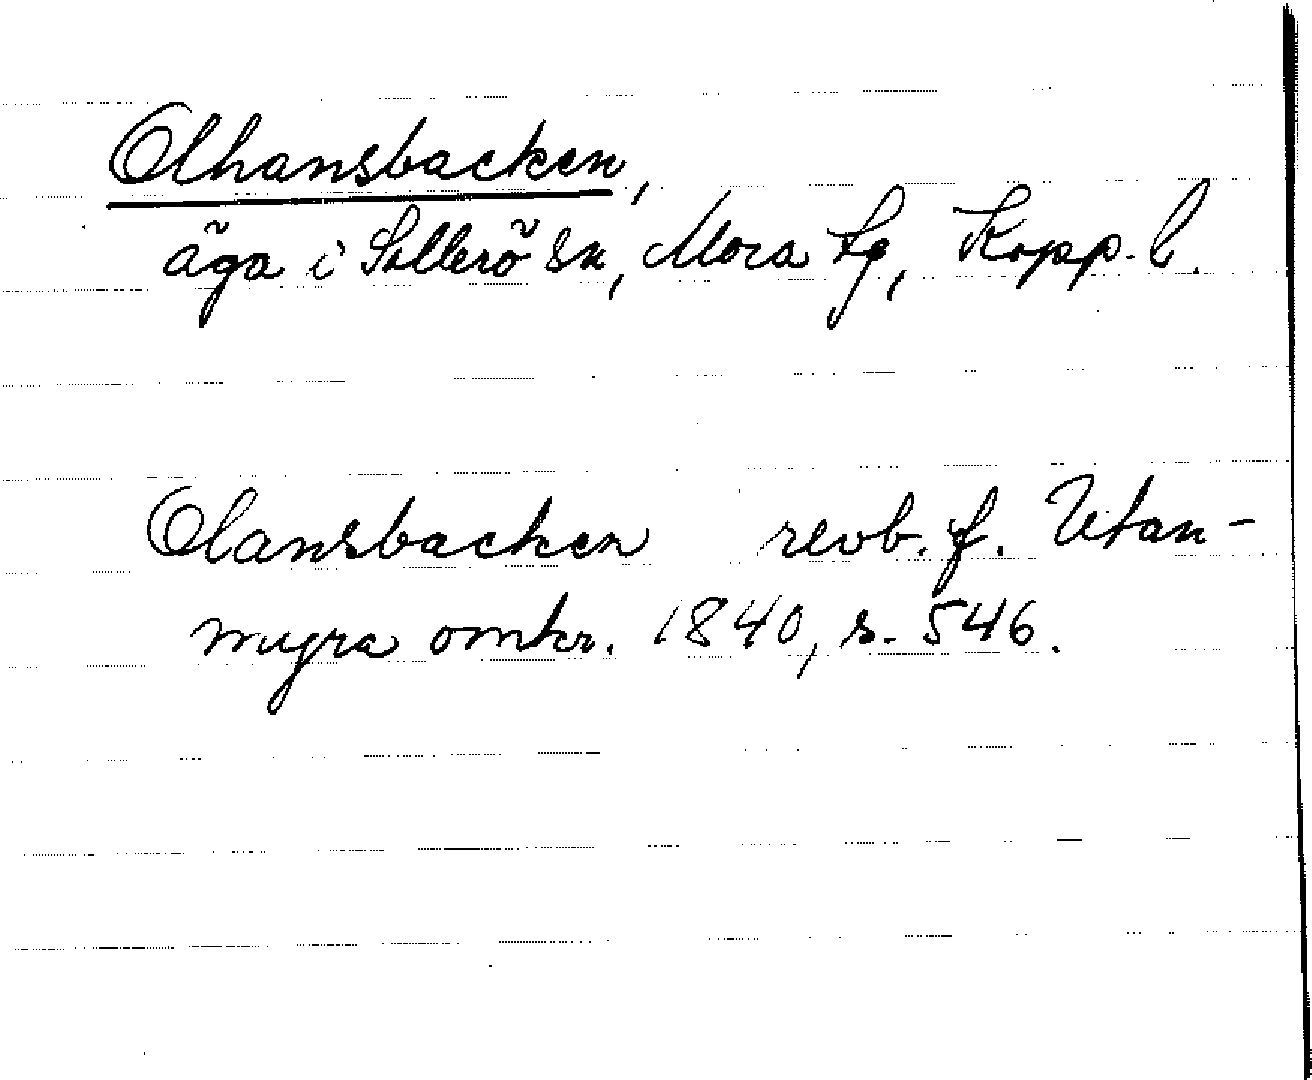 Olhansbacken,
äga i Sollerö sn, Mora tg, Kopp. l.
Olansbacken revb. f. Utan-
myra omkr. 1840, s. 546.